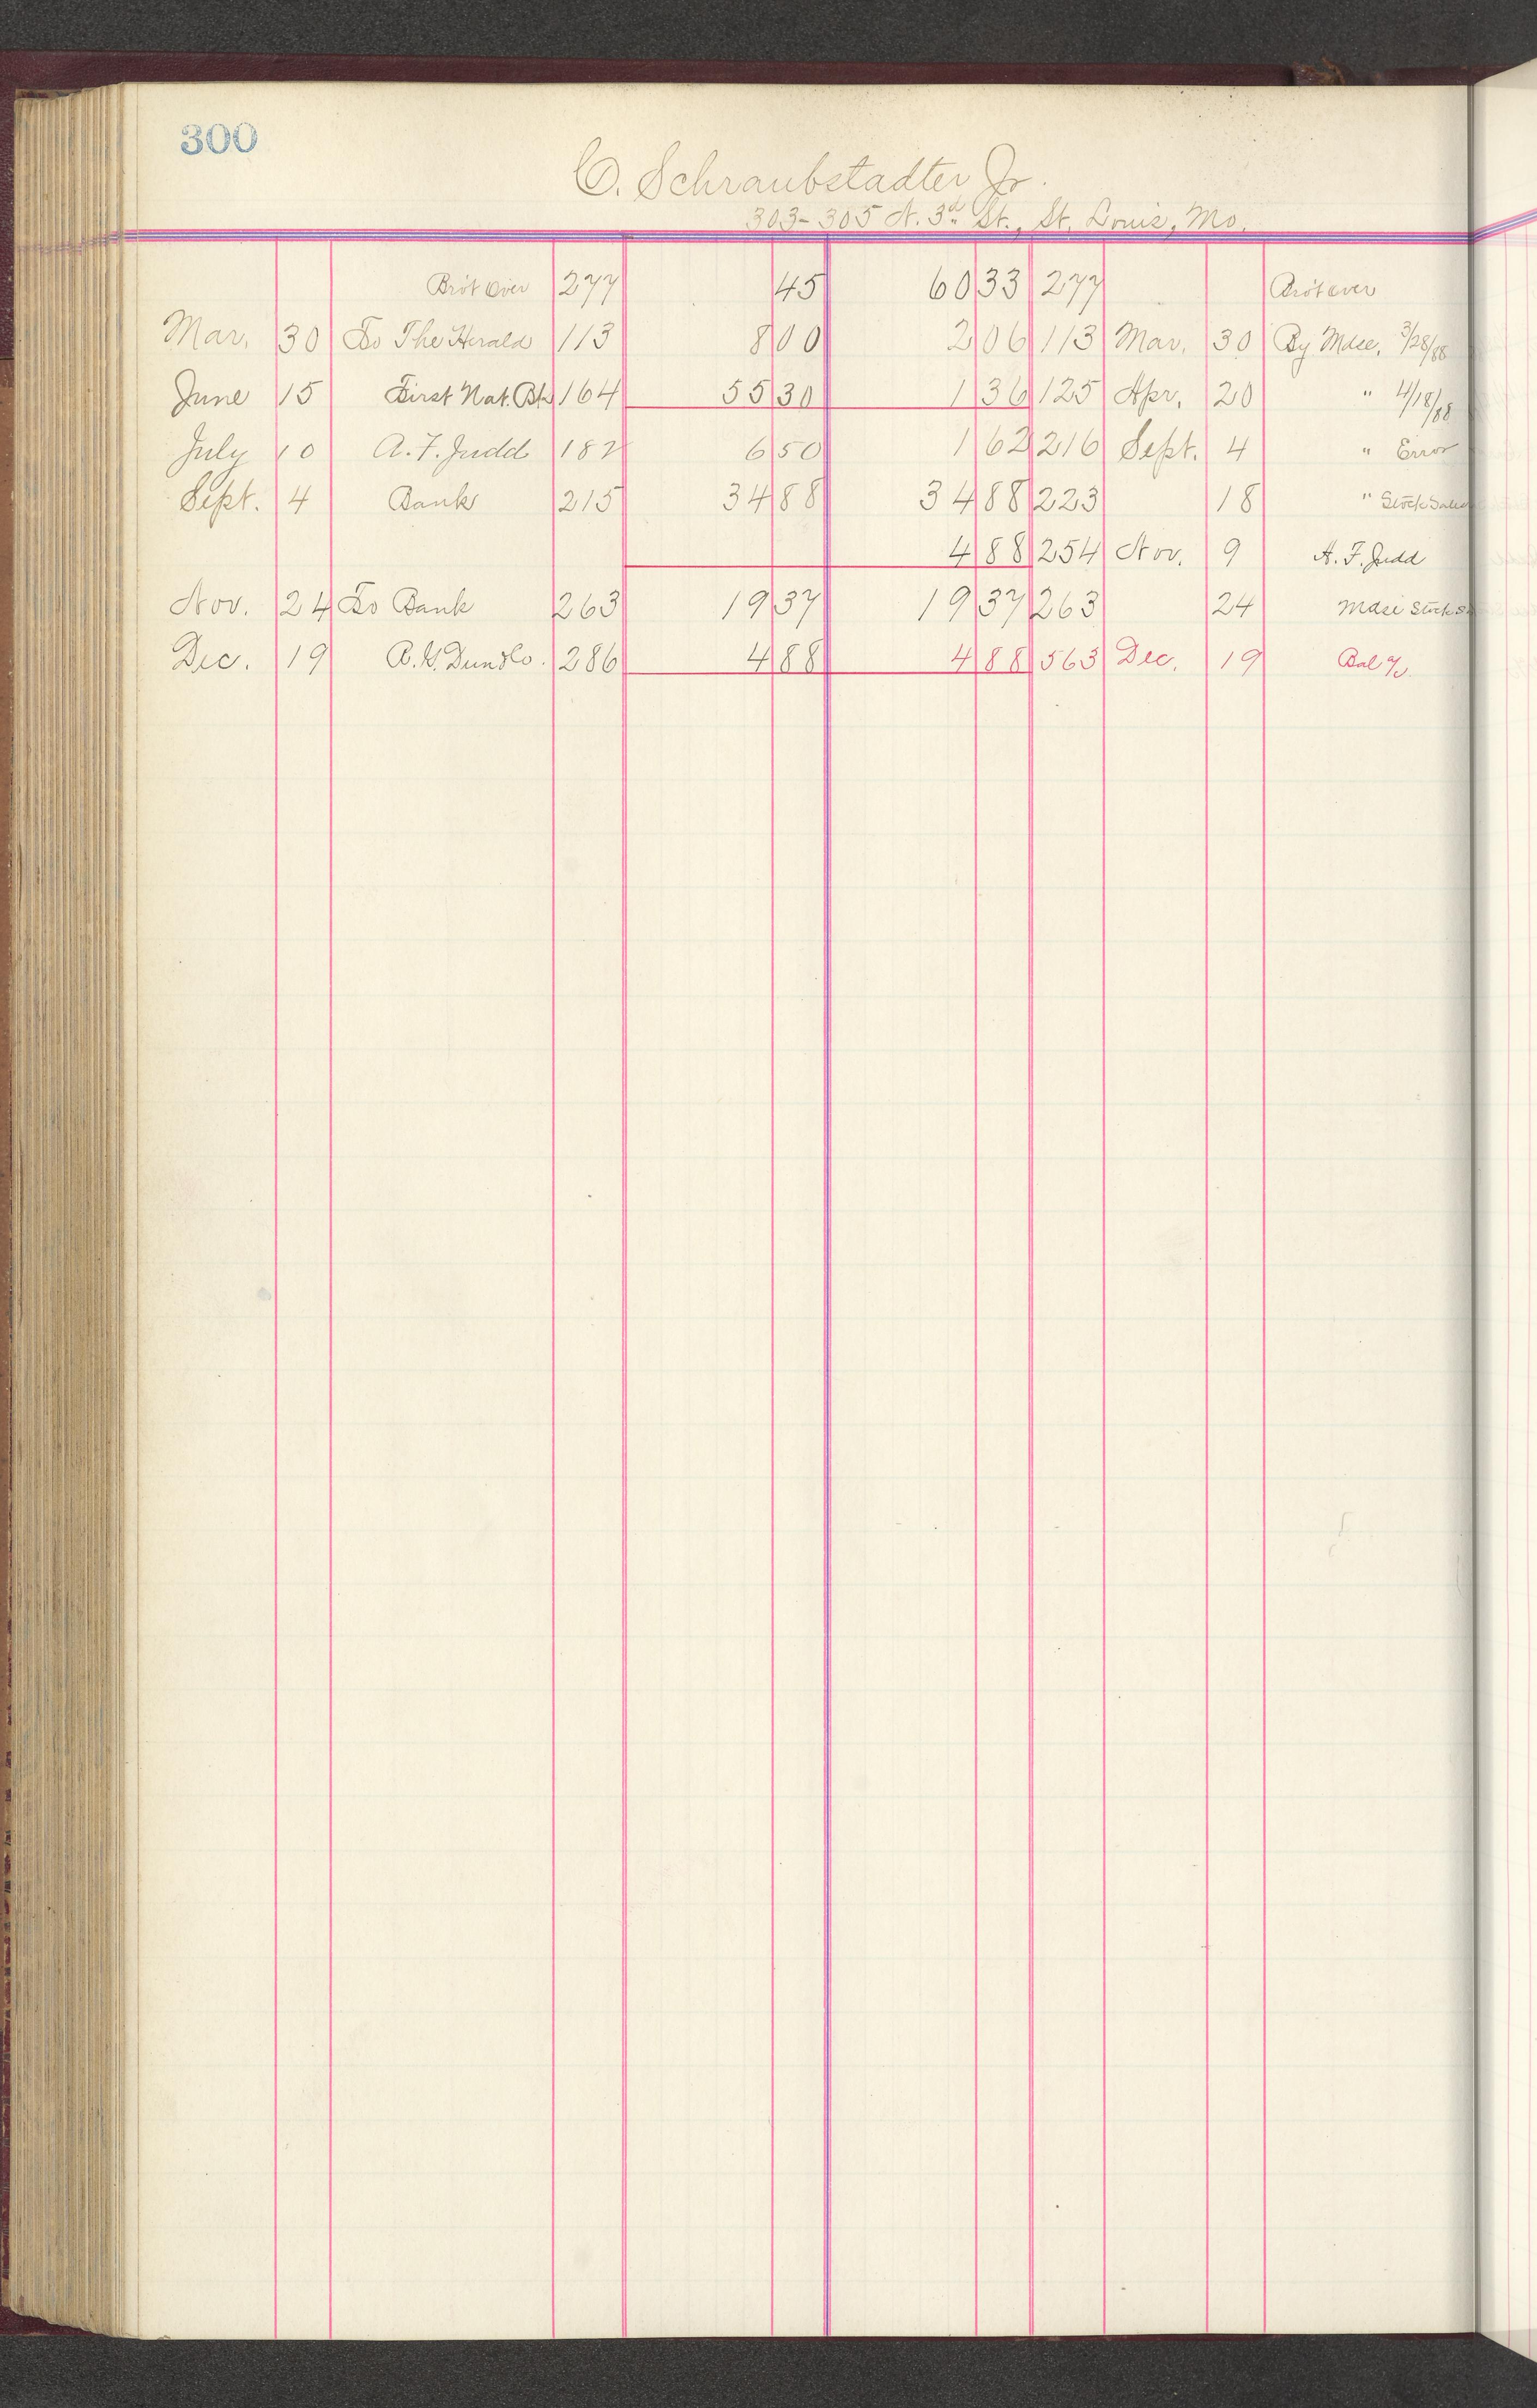 300
C. Schraubstadter Jr.
303-305 N. 3d St., St. Louis, Mo.
Brōt Over 277 45 60 33 277 Brōt over
Mar. 30 To The Herald 113 8 00 2 06 113 Mar. 30 By Mdse. 3/28/88
June 15 First Nat. Bk 164 55 30 1 36 125 Apr. 20 " 4/18/88
July 10 A. F. Judd 182 6 50 1 62 216 Sept. 4 " Error
Sept. 4 Bank 215 34 88 34 88 223 18 " Stock Sales
4 88 254 Nov. 9 A. F. Judd
Nov. 24 To Bank 263 19 37 19 37 263 24 Mdse Stock
Dec. 19 286 4 88 4 88 563 Dec. 19 Bal